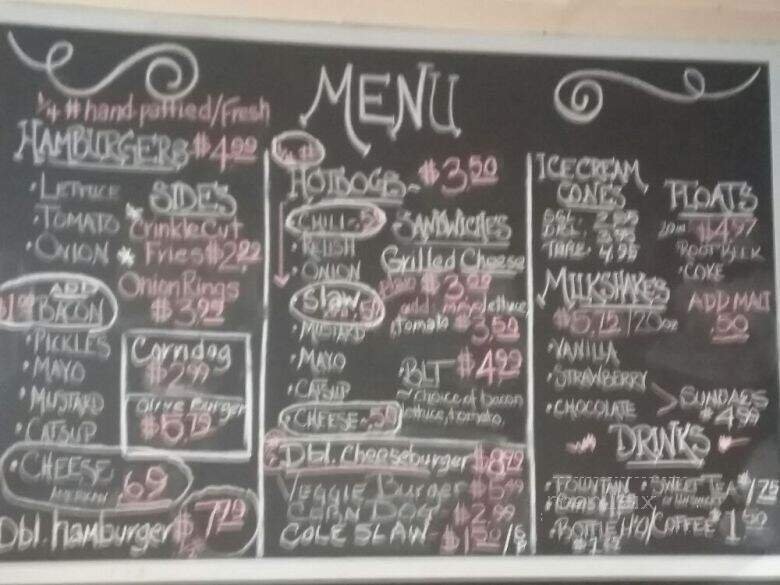 MENU
1/4 # hand pattied/Fresh
HAMBURGERS $4.99
• LETTUCE
• TOMATO
• ONION
ADD
BACON
• PICKLES
• MAYO
• MUSTARD
• CATSUP
• CHEESE .69
AMERICAN
Dbl. hamburger $7.29
SIDES
Crinkle Cut
Fries $2.99
Onion Rings
$3.99
Corndog
$2.99
Olive Burger
$5.79
1/4 #
HOTDOGS ~ $3.50
• CHILI .50
• RELISH
• ONION
• Slaw .50
• MUSTARD
• MAYO
• CATSUP
• CHEESE .50
SANDWICHES
Grilled Cheese
$3.00
add mayo, lettuce,
tomato $3.50
• BLT $4.99
~ choice of bacon
lettuce, tomato
Dbl. Cheeseburger $8.49
VEGGIE Burger $5.49
CORN DOG $2.99
COLE SLAW ~ $1.50/
ICE CREAM
CONES
SGL.
DBL.
4.95
FLOATS
20oz $4.97
ROOT BEER
• COKE
MILKSHAKES
$5.72/20oz
• VANILLA
• STRAWBERRY
• CHOCOLATE
ADD MALT
.50
SUNDAES
$4.99
DRINKS
• FOUNTAIN • SWEET TEA $1.75
• BOTTLE H2O/COFFEE $1.50